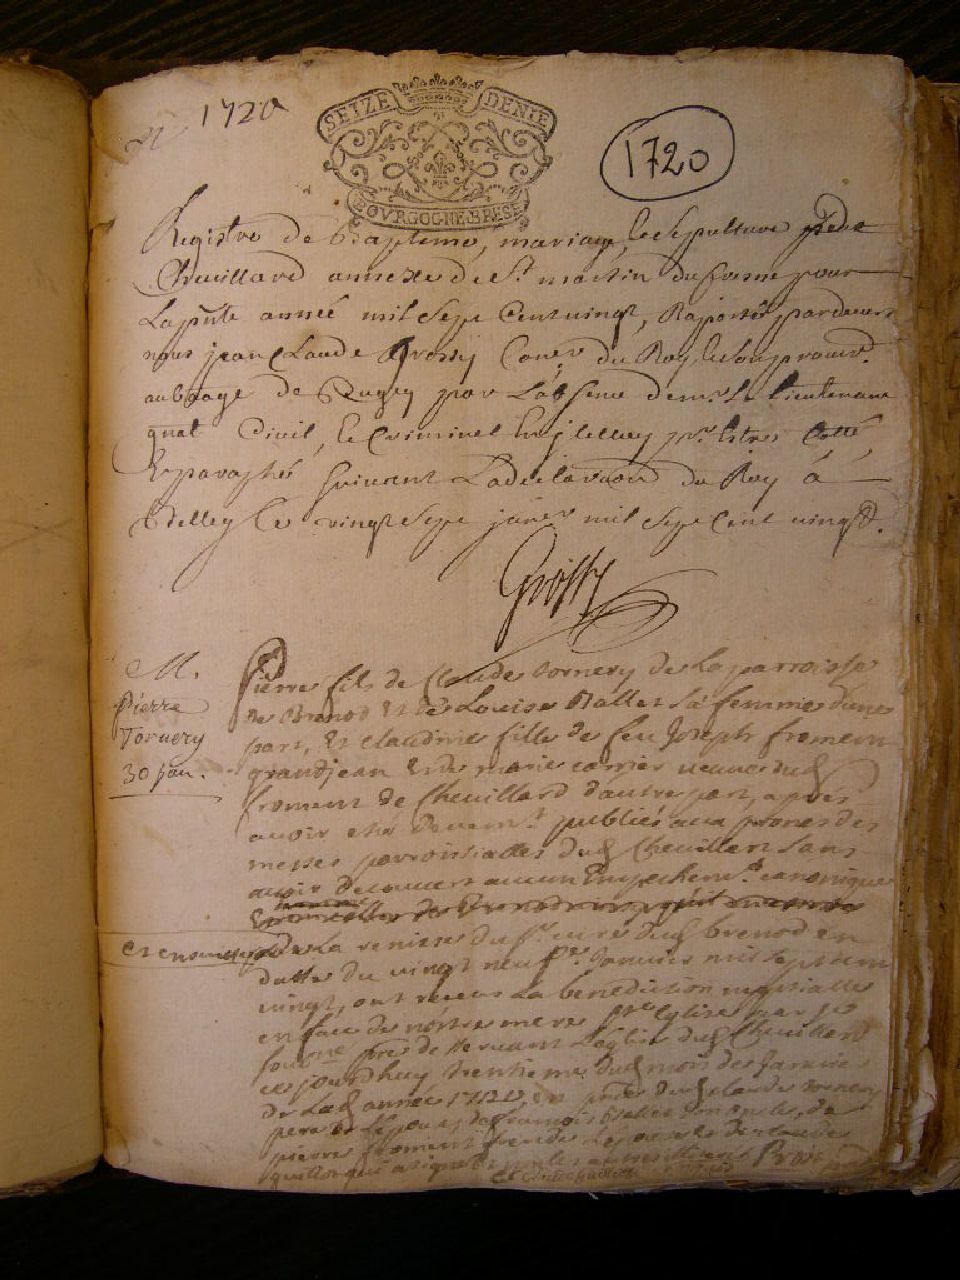 1720
SEIZE DENIE
BOVRGOGNE·BRESE
1720
Registre de Bapteme, mariage, et Sepulture
Chevillard annexe de St martin du fresne pour
La pnte année mil Sept Cent vingt, pardevant
nous jean Claude Grossy Coner du Roy,
au Bttage de Bugey pour L'absence de mr Le Lieutenant
gnal Civil, et Criminel
Et paraphé suivant La declaration du Roy á
Belley Ce vingt Sept janer mil Sept Cent vingt.
Grossy
M.
Pierre
Tornery
30 jan.
Pierre fils de Claude Tornery de La parroisse
de Brenod et de Louise Ballet Sa femme d'une
part, Et claudine fille de feu Joseph froment
grandjean Et de marie carrier veuve dud
froment de Chevillard d'autre part, aprés
avoir esté devemt publiés aux prones des
messes parroissialles dud Chevillard Sans
avoir decouvert aucun Empechemt canonique
de La remise du sr curé dud brenod en
datte du vingt neuf janvier mil sept cent
vingt, ont receu La benediction nuptialle
en face de nôtre mere ste Eglise par je
soussigné ptre deservant L'eglise dud Chevillard
ce jourdhuy trentieme dud mois de Janvier
de Lad année 1720, en pnce dud claude Tornery
pere de L'epoux, de françois Ballet son oncle, de
pierre froment